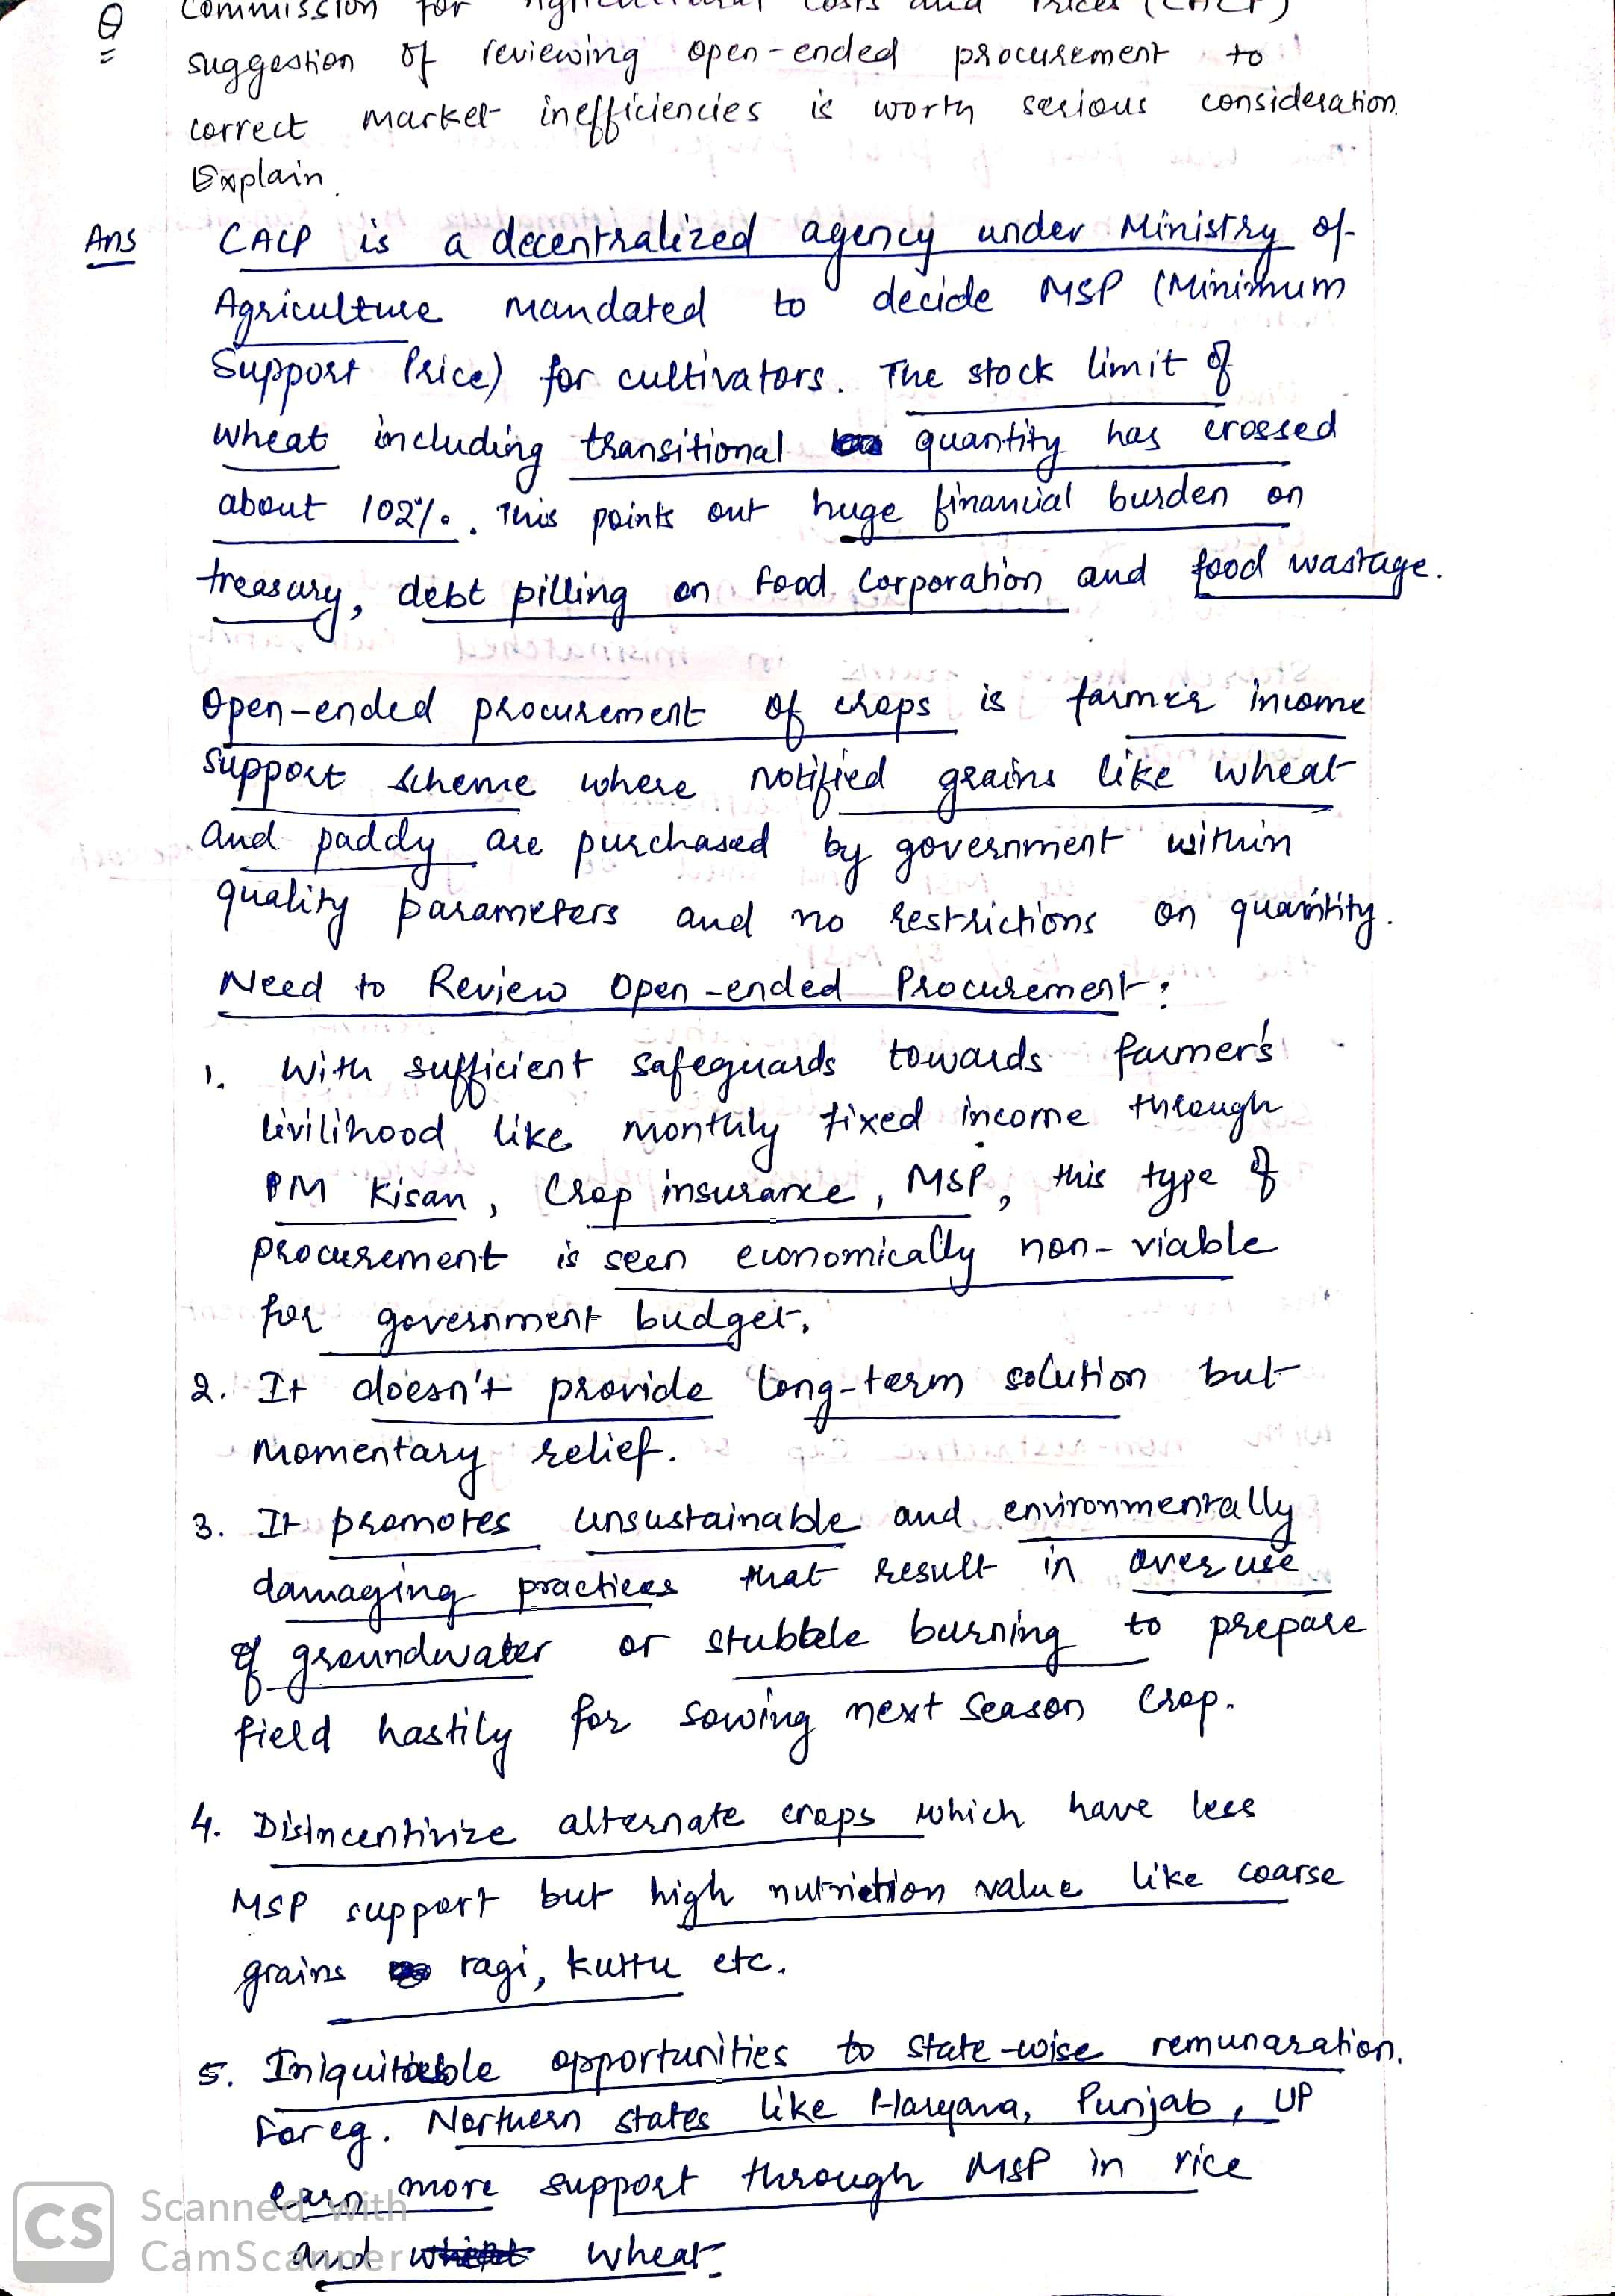 Q Commission for Agricultural Costs and Prices (CACP)
suggestion of reviewing open-ended procurement to
correct market inefficiencies is worth serious consideration.
Explain.
Ans CACP is a decentralized agency under Ministry of
Agriculture mandated to decide MSP (Minimum
Support Price) for cultivators. The stock limit of
wheat including transitional quantity has crossed
about 102%. This points out huge financial burden on
treasury, debt pilling on Food Corporation and food wastage.
Open-ended procurement of crops is farmer income
support scheme where notified grains like wheat
and paddy are purchased by government within
quality parameters and no restrictions on quantity.
Need to Review Open-ended Procurement:
1. With sufficient safeguards towards farmer's
livilihood like monthly fixed income through
PM Kisan, Crop insurance, MSP, this type of
procurement is seen economically non-viable
for government budget.
2. It doesn't provide long-term solution but
momentary relief.
3. It promotes unsustainable and environmentally
damaging practices that result in overuse
of groundwater or stubble burning to prepare
field hastily for sowing next season crop.
4. Disincentivize alternate crops which have less
MSP support but high nutrietion value like coarse
grains ragi, kuttu etc.
5. Iniquitable opportunities to state-wise remunaration.
For eg. Northern states like Haryana, Punjab, UP
earn more support through MSP in rice
and wheat.
CS Scanned with
CamScanner